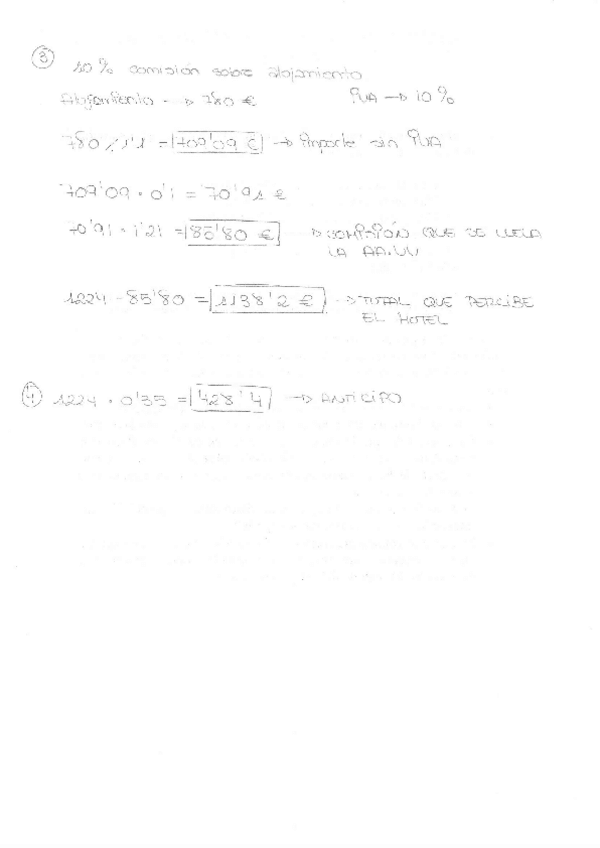 ③ 10% comisión sobre alojamiento
Alojamiento → 780 € IVA → 10%
780 / 1'1 = 709'09 € → Importe sin IVA
709'09 · 0'1 = 70'91 €
70'91 · 1'21 = 85'80 € → COMISIÓN QUE SE LLEVA
LA AA.VV
1224 - 85'80 = 1138'2 € → TOTAL QUE PERCIBE
EL HOTEL
④ 1224 · 0'35 = 428'4 → ANTICIPO